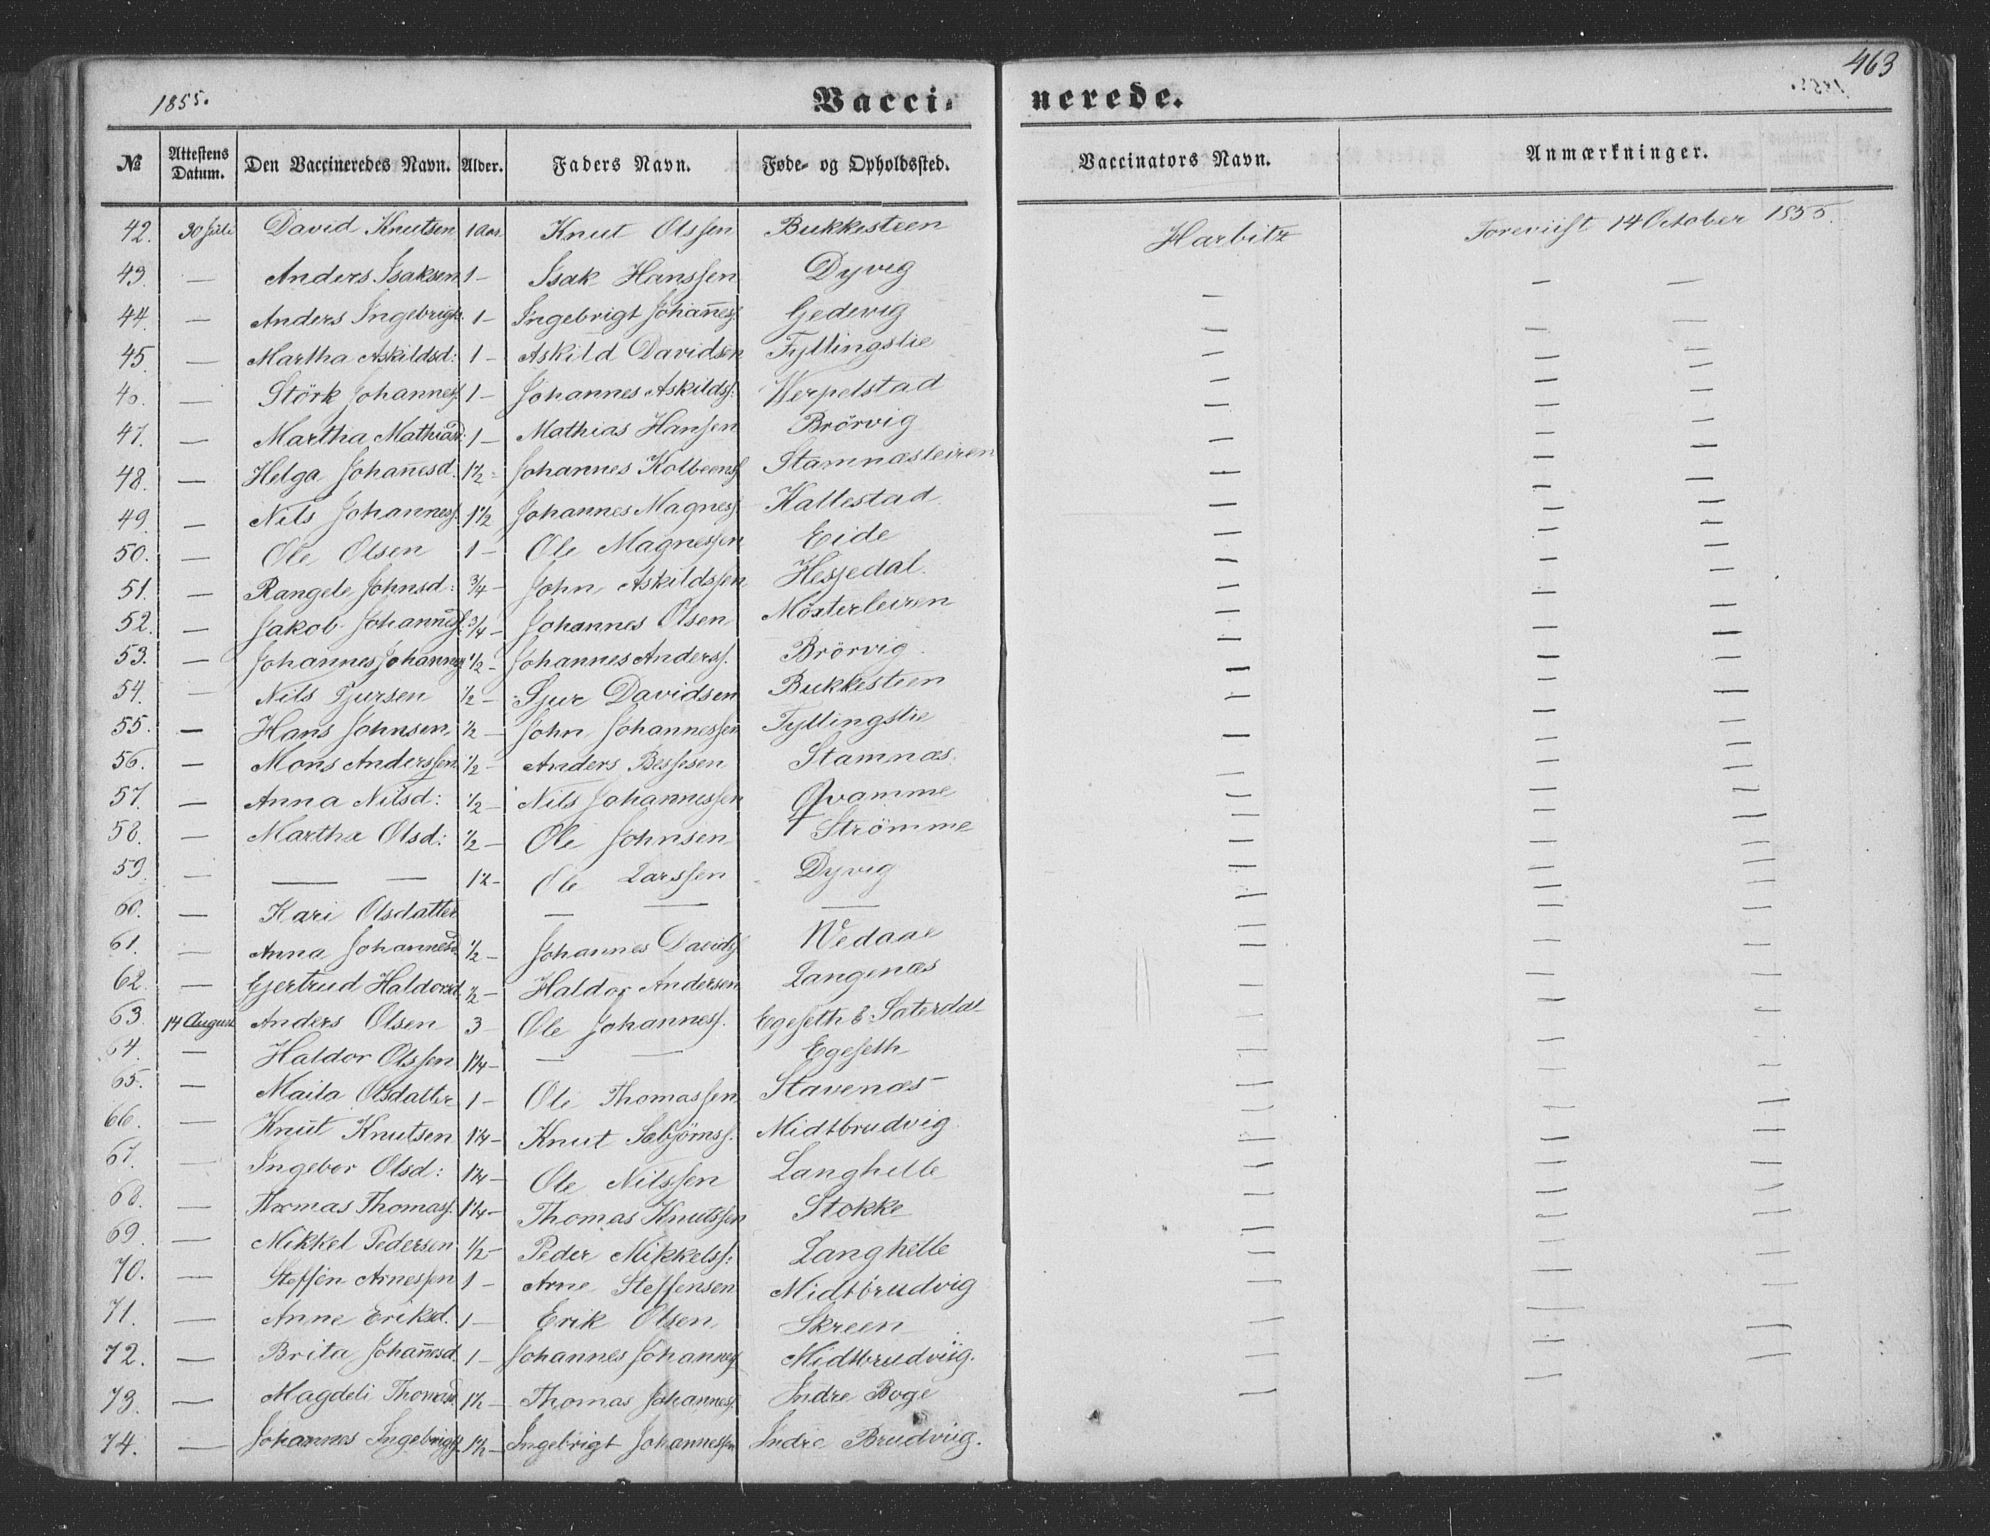 463
1855.
Vacci- nerede.
№ Attestens Datum. Den Vaccineredes Navn. Alder. Faders Navn. Føde- og Opholdssted. Vaccinators Navn. Anmærkninger.
42. 30 Juli David Knutsen 1 Aar Knut Olssen Bukkesteen Harbitz Foreviist 14 October 1855.
43. — Anders Isaksen 1 — Isak Hanssen Dyvig — — —
44. — Anders Ingebrigts. 1 — Ingebrigt Johaness. Gedevig — — —
45. — Martha Askildsd: 1 — Askild Davidsen Fyllingslie — — —
46. — Störk Johanness. 1 — Johannes Askildss: Werpelstad — — —
47. — Martha Mathiasd: 1 — Mathias Hansen Brörvig — — —
48. — Helga Johanesd. 1½ - Johannes Kolbeens. Stamnæsleiren — — —
49. — Nils Johanness. 1½ Johannes Magness. Kallestad — — —
50. — Ole Olsen 1 — Ole Magnessen Eide — — —
51. — Rangele Johnsd: ¾ — John Askildssen Hesjedal. — — —
52. — Jakob Johanness. ¾ — Johannes Olsen Mösterleiren — — —
53. — Johannes Johanness. ½ — Johannes Anderss. Brörvig — — —
54. — Nils Sjursen ½ — Sjur Davidsen Bukkesteen — — —
55. — Hans Johnsen ½ — John Johannessen Fyllingslie — — —
56. — Mons Anderssen ½ — Anders Bessesen Stamnæs. — — —
57. — Anna Nilsd: ½ — Nils Johannessen Qvamme — — —
58. — Martha Olsd: ½ — Ole Johnsen Strömme — — —
59. — — — 12 — Ole Larssen Dyvig — — —
60. — Kari Olsdatter — — — — — —
61. — Anna Johannesd. ½ — Johannes Davids. Wedaae — — —
62. — Gjertrud Haldorsd. ½ — Haldor Andersen Langenæs — — —
63. 14 August Anders Olsen 3 — Ole Johanness. Egeseth & Saterdal — — —
64. — Haldor Olssen 1¼ — — — Egeseth — — —
65. — Maita Olsdatter 1 — Ole Thomassen Stavenæs — — —
66. — Knut Knutsen 1¼ — Knut Sebjörnss. Midtbrudvig — — —
67. — Ingebor Olsd: 1¼ — Ole Nilssen Langhelle — — —
68. — Thomas Thomass. 1¼ — Thomas Knutssen Stokke — — —
69. — Mikkel Pedersen ½ — Peder Mikkelss: Langhelle — — —
70. — Steffen Arnessen 1 — Arne Steffensen Midtbrudvig — — —
71. — Anne Eriksd. 1 — Erik Olsen Skreen — — —
72. — Brita Johanesd. 1 — Johannes Johanness. Midtbrudviig. — — —
73. — Magdeli Thomasd. 1½ — Thomas Johanness. Indre Boge — — —
74. — Johannes Ingebrigts. 1½ — Ingebrigt Johannessen Indre Brudviig.